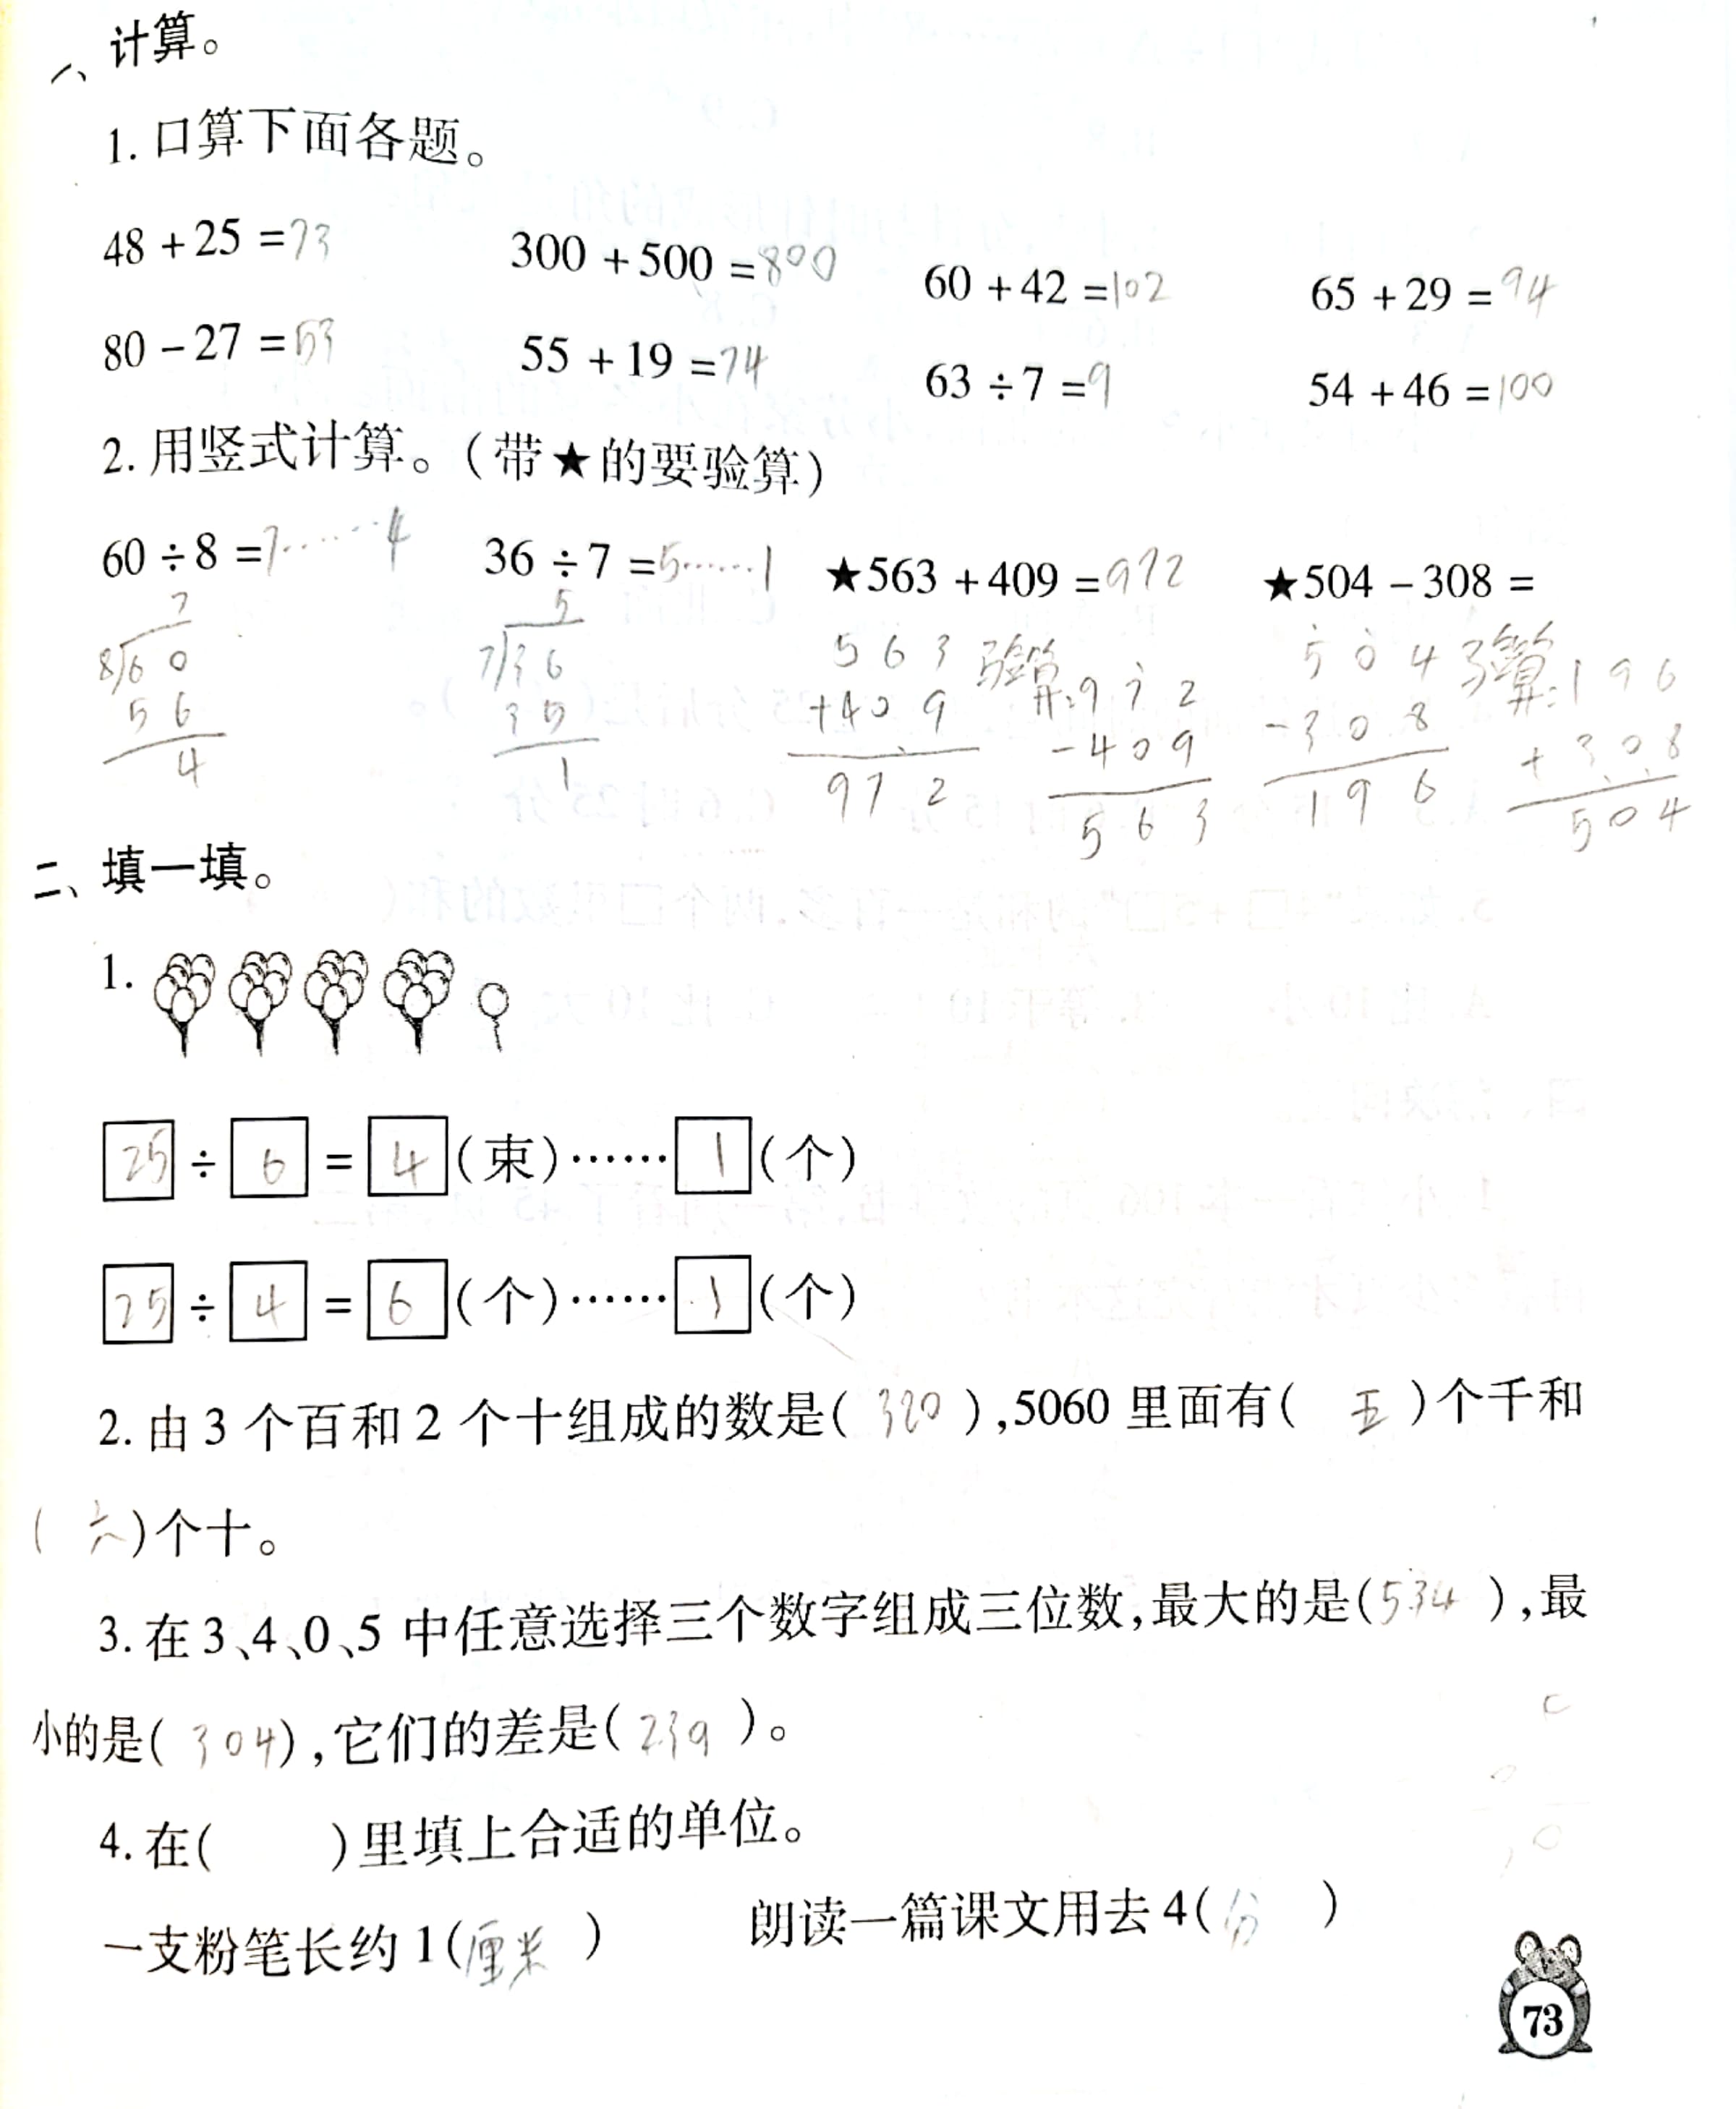 一、计算。
1. 口算下面各题。
48 + 25 = 73 300 + 500 = 800 60 + 42 = 102 65 + 29 = 94
80 - 27 = 53 55 + 19 = 74 63 ÷ 7 = 9 54 + 46 = 100
2. 用竖式计算。(带★的要验算)
60 ÷ 8 = 7……4 36 ÷ 7 = 5……1 ★563 + 409 = 972 ★504 - 308 =
7 5
8)60 7)36 563 验算:972 504 验算:196
56 35 +409 -409 -308 +308
4 1 972 563 196 504
二、填一填。
1.
25 ÷ 6 = 4 (束)……1 (个)
25 ÷ 4 = 6 (个)……1 (个)
2. 由 3 个百和 2 个十组成的数是( 320 ),5060 里面有( 五 )个千和
( 六 )个十。
3. 在 3、4、0、5 中任意选择三个数字组成三位数,最大的是( 534 ),最
小的是( 304 ),它们的差是( 239 )。
4. 在( )里填上合适的单位。
一支粉笔长约 1( 厘米 ) 朗读一篇课文用去 4( 分 )
73